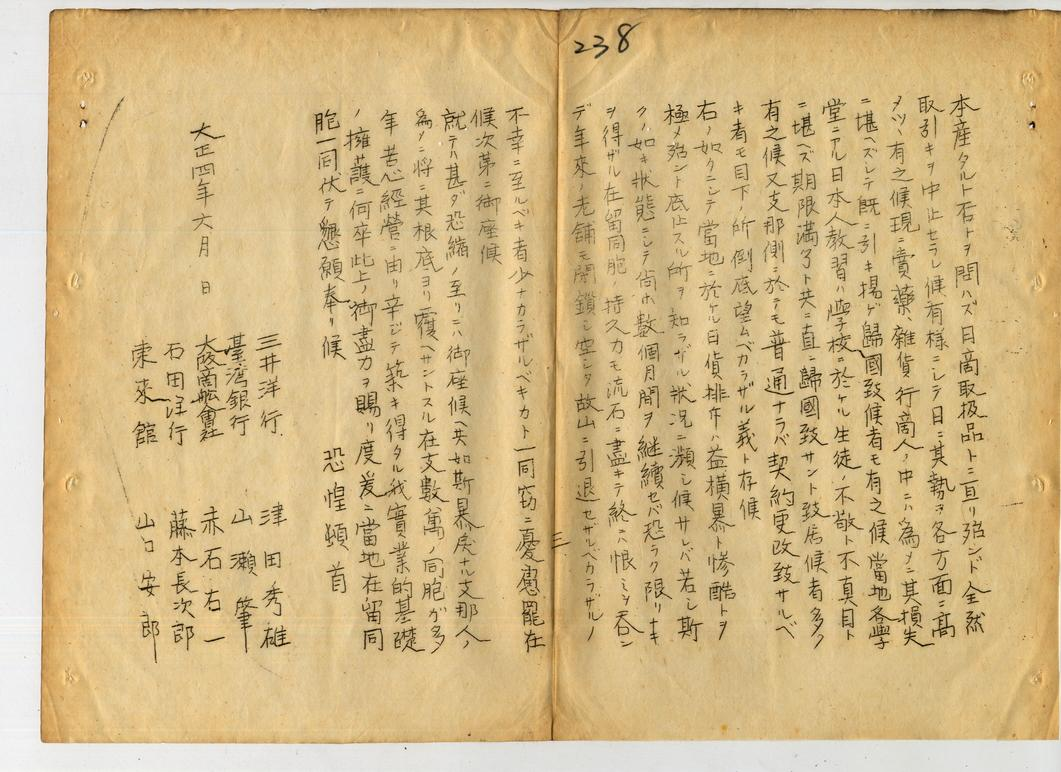 238
本産タルト否トヲ問ハズ日商取扱品トニ亘リ殆ンド全然
取引キヲ中止セラレ候有様ニシテ日ニ其勢ヲ各方面ニ高
メツヽ有之候現ニ賣藥、雜貨行商人ノ中ニハ為メニ其損失
ニ堪ヘズシテ既ニ引キ揚ゲ歸國致候者モ有之候當地各學
堂ニアル日本人教習ハ學校ニ於ケル生徒ノ不敬ト不真目ト
ニ堪ヘズ期限満了ト共ニ直ニ歸國致サント致居候者多ク
有之候又支那側ニ於テモ普通ナラバ契約更改致サルベ
キ者モ目下ノ所倒底望ムベカラザル義ト存候
右ノ如クニシテ當地ニ於ケル日貨排斥ハ益横暴ト惨酷トヲ
極メ殆ント底止スル所ヲ知ラザル状況ニ瀕シ候サレバ若シ斯
クノ如キ状態ニシテ尚ホ数個月間ヲ継續セバ恐ラク限リナキ
ヲ得ザル在留同胞ノ持久力モ流石ニ盡キテ終ニハ恨ミヲ呑ン
デ年來ノ老舗モ閉鎖シ空シク故山ニ引退セザルベカラザルノ
三
不幸ニ至ルベキ者少ナカラザルベキカト一同窃ニ憂慮罷在
候次第ニ御座候
就テハ甚ダ恐縮ノ至リニハ御座候ヘ共如斯暴戻ナル支那人ノ
為メニ將ニ其根底ヨリ覆ヘサントスル在支數萬ノ同胞ガ多
年苦心經營ニ由リ辛ジテ築キ得タル我實業的基礎
ノ擁護ニ何卒此上ノ御盡力ヲ賜リ度爰ニ當地在留同
胞一同伏テ懇願奉リ候 恐惶頓首
大正四年六月 日
三井洋行 津田秀雄
臺湾銀行 山瀬肇
大阪商船會社 赤石右一
石田洋行 藤本長次郎
東來館 山口安郎